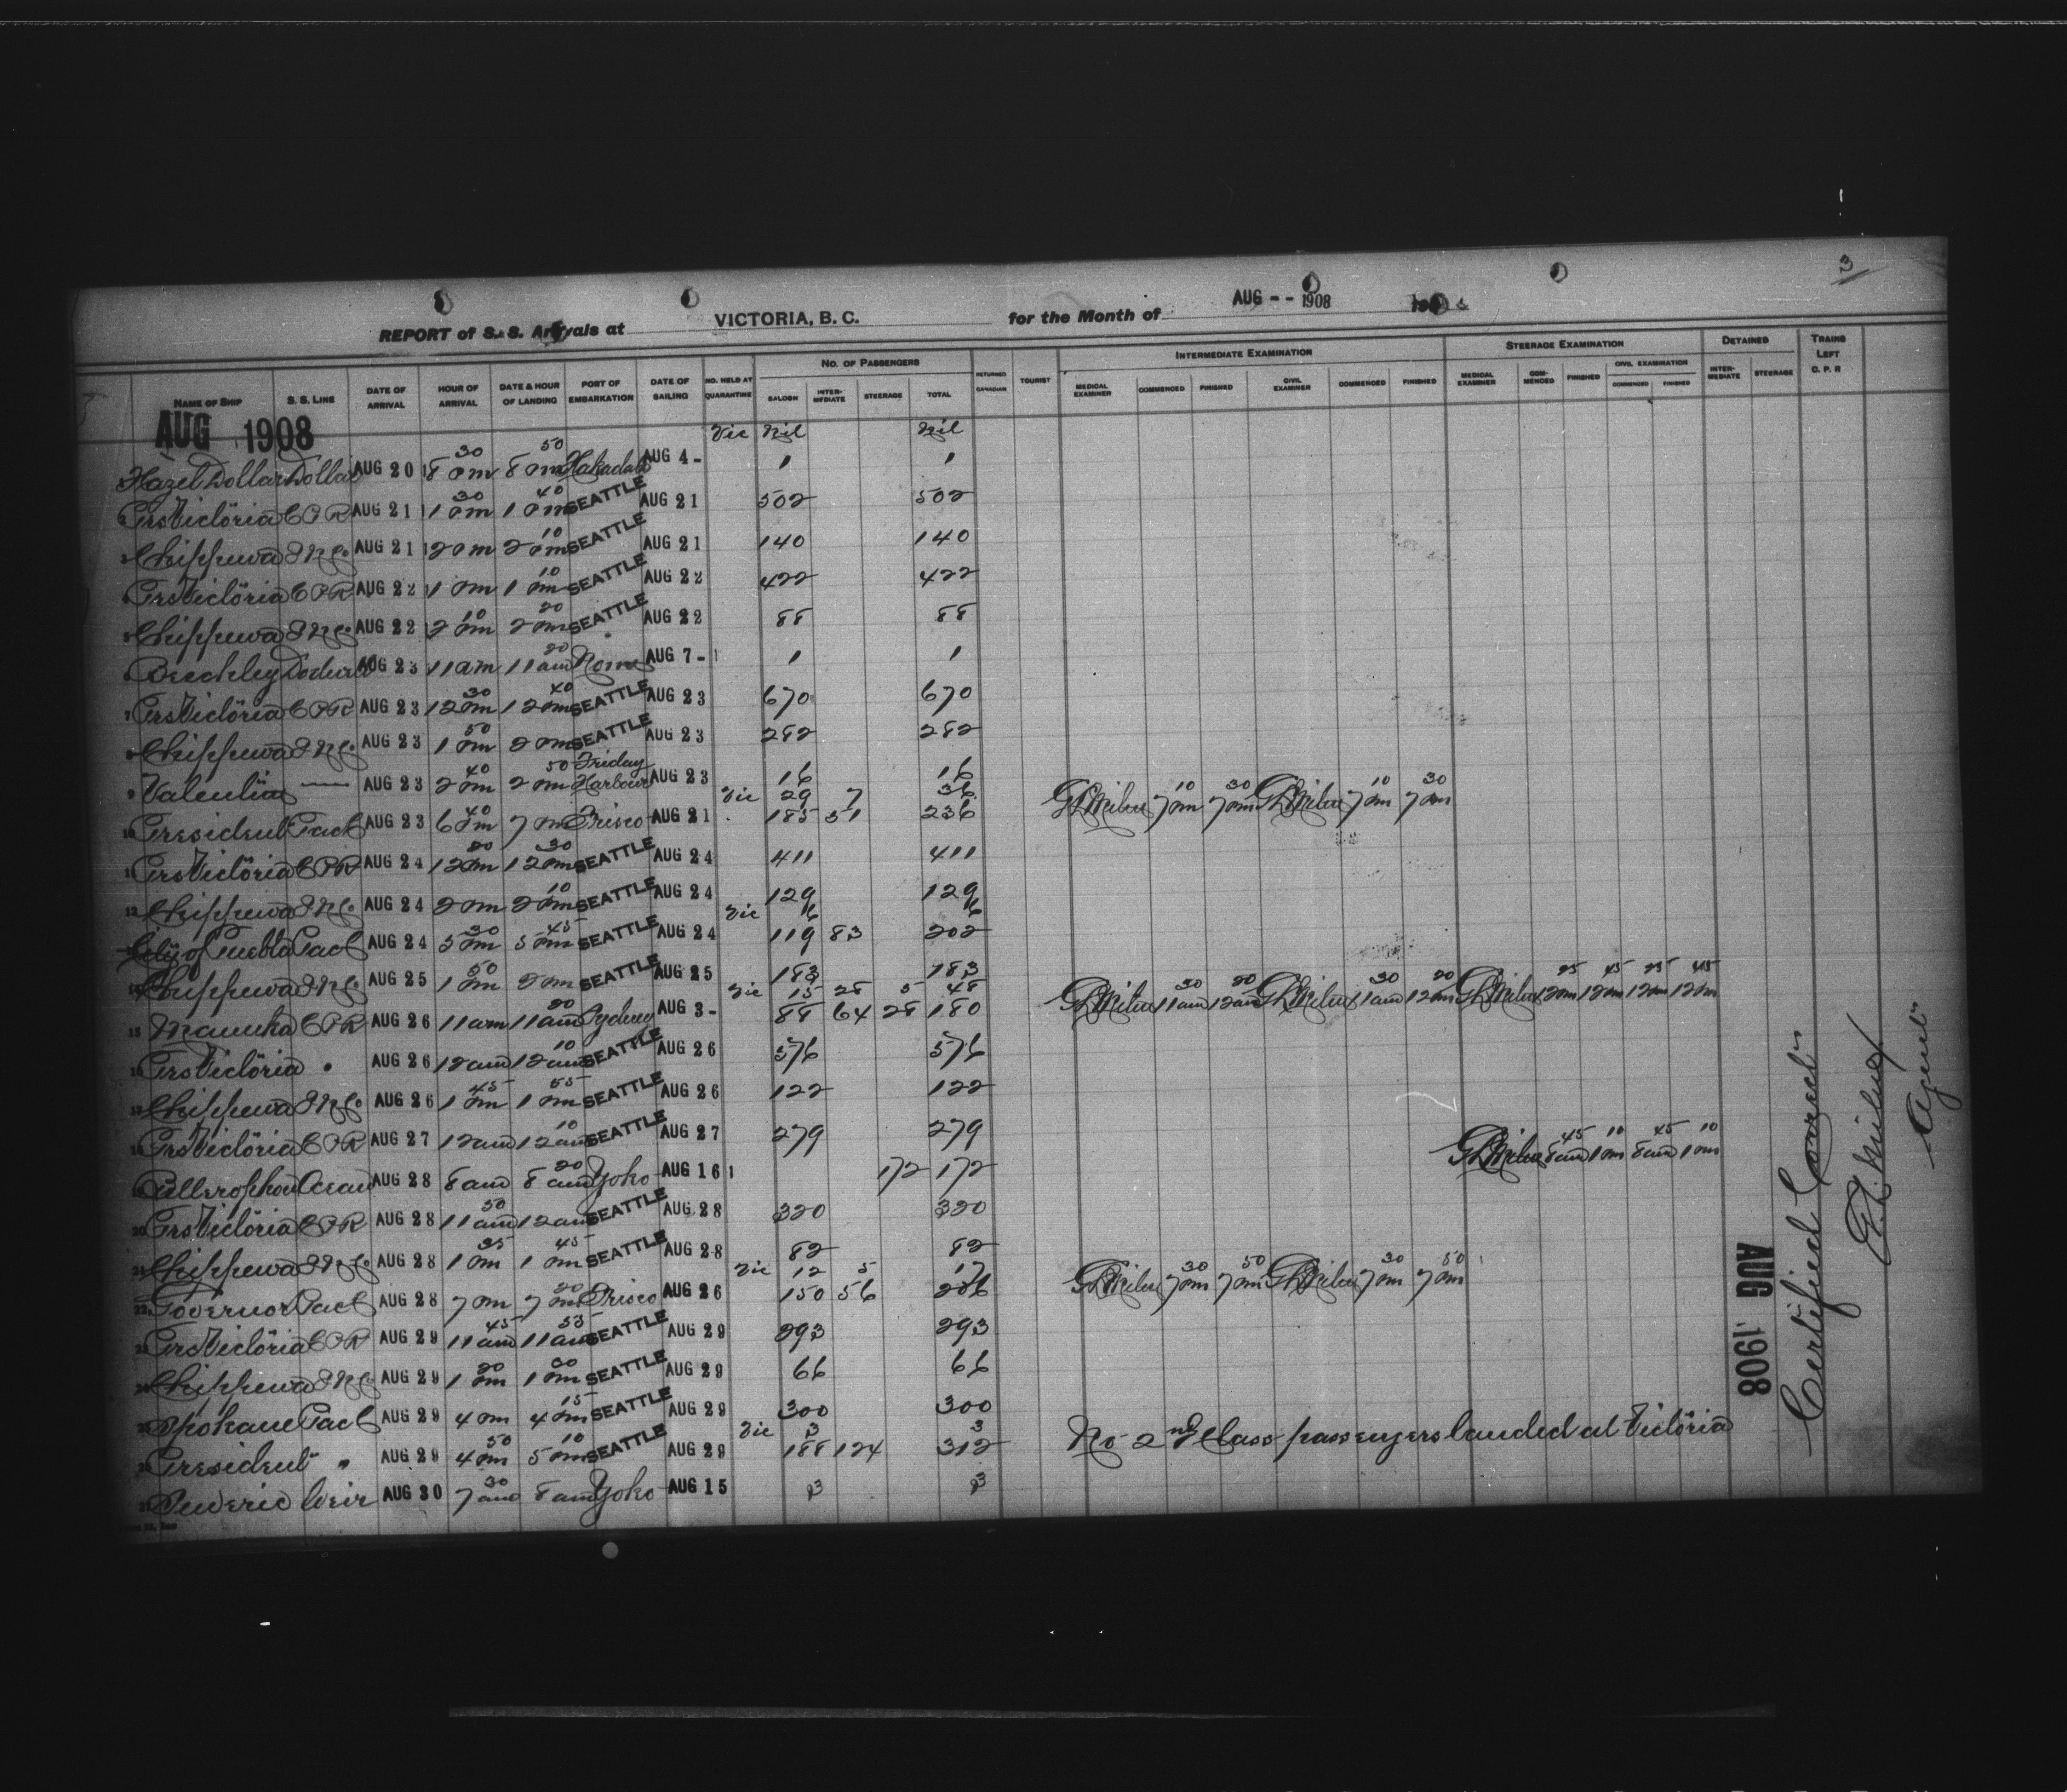 3
REPORT of S. S. Arrivals at VICTORIA, B. C. for the Month of AUG -- 1908 190
NAME OF SHIP S. S. LINE DATE OF ARRIVAL HOUR OF ARRIVAL DATE & HOUR OF LANDING PORT OF EMBARKATION DATE OF SAILING NO. HELD AT QUARANTINE NO. OF PASSENGERS SALOON INTERMEDIATE STEERAGE TOTAL RETURNED CANADIAN TOURIST INTERMEDIATE EXAMINATION MEDICAL EXAMINER COMMENCED FINISHED CIVIL EXAMINER COMMENCED FINISHED STEERAGE EXAMINATION MEDICAL EXAMINER COMMENCED FINISHED CIVIL EXAMINATION COMMENCED FINISHED DETAINED INTERMEDIATE STEERAGE TRAINS LEFT C. P. R
AUG 1908
Vic Nil Nil
1 Hazel Dollar Dollar AUG 20 8 30 pm 8 50 pm AUG 4 - 1 1
2 Prs Victoria CPR AUG 21 1 30 pm 1 40 pm SEATTLE AUG 21 502 502
3 Chippewa INCo AUG 21 2 pm 2 10 pm SEATTLE AUG 21 140 140
4 Prs Victoria CPR AUG 22 1 pm 1 10 pm SEATTLE AUG 22 422 422
5 Chippewa INCo AUG 22 2 10 pm 2 20 pm SEATTLE AUG 22 88 88
6 Beechley Dodwell AUG 23 11 am 11 20 am Nome AUG 7 - 1 1
7 Prs Victoria CPR AUG 23 12 30 pm 12 40 pm SEATTLE AUG 23 670 670
8 Chippewa INCo AUG 23 1 50 pm 2 pm SEATTLE AUG 23 282 282
9 Valentia — AUG 23 2 40 pm 2 50 pm Friday Harbour AUG 23 16 16
Vic 29 7 36
10 President Pact AUG 23 6 40 pm 7 pm Frisco AUG 21 185 51 236 GLMilne 7 10 pm 7 30 pm GLMilne 7 10 pm 7 30 pm
11 Prs Victoria CPR AUG 24 12 20 pm 12 30 pm SEATTLE AUG 24 411 411
12 Chippewa INCo AUG 24 2 pm 2 10 pm SEATTLE AUG 24 129 129
Vic 6 6
13 City of Puebla Pact AUG 24 5 30 pm 5 45 pm SEATTLE AUG 24 119 83 202
14 Chippewa INCo AUG 25 1 50 pm 2 pm SEATTLE AUG 25 183 183
Vic 15 28 5 48
15 Manuka CPR AUG 26 11 am 11 20 am Sydney AUG 3 - 88 64 28 180 GLMilne 11 30 am 12 20 am GLMilne 11 30 am 12 20 pm GLMilne 12 25 pm 12 45 pm 12 25 pm 12 45 pm
16 Prs Victoria " AUG 26 12 am 12 10 am SEATTLE AUG 26 576 576
17 Chippewa INCo AUG 26 1 45 pm 1 55 pm SEATTLE AUG 26 122 122
18 Prs Victoria CPR AUG 27 12 am 12 10 am SEATTLE AUG 27 279 279
19 Bellerophon Ocean AUG 28 8 am 8 20 am Yoko AUG 16 172 172 GLMilne 8 45 am 1 10 pm 8 45 am 1 10 pm
20 Prs Victoria CPR AUG 28 11 50 am 12 am SEATTLE AUG 28 320 320
21 Chippewa INCo AUG 28 1 35 pm 1 45 pm SEATTLE AUG 28 82 82
Vic 12 5 17
22 Governor Pact AUG 28 7 pm 7 20 pm Frisco AUG 26 150 56 206 GLMilne 7 30 pm 7 50 pm GLMilne 7 30 pm 7 50 pm
23 Prs Victoria CPR AUG 29 11 45 am 11 55 am SEATTLE AUG 29 293 293
24 Chippewa INCo AUG 29 1 20 pm 1 30 pm SEATTLE AUG 29 66 66
25 Spokane Pact AUG 29 4 pm 4 15 pm SEATTLE AUG 29 300 300
Vic 3 3
26 President " AUG 29 4 50 pm 5 10 pm SEATTLE AUG 29 188 124 312 No 2nd Class passengers landed at Victoria
27 Suveric Weir AUG 30 7 30 am 8 am Yoko AUG 15 3 3
AUG 1908
Certified Correct
G.L. Milne
Agent